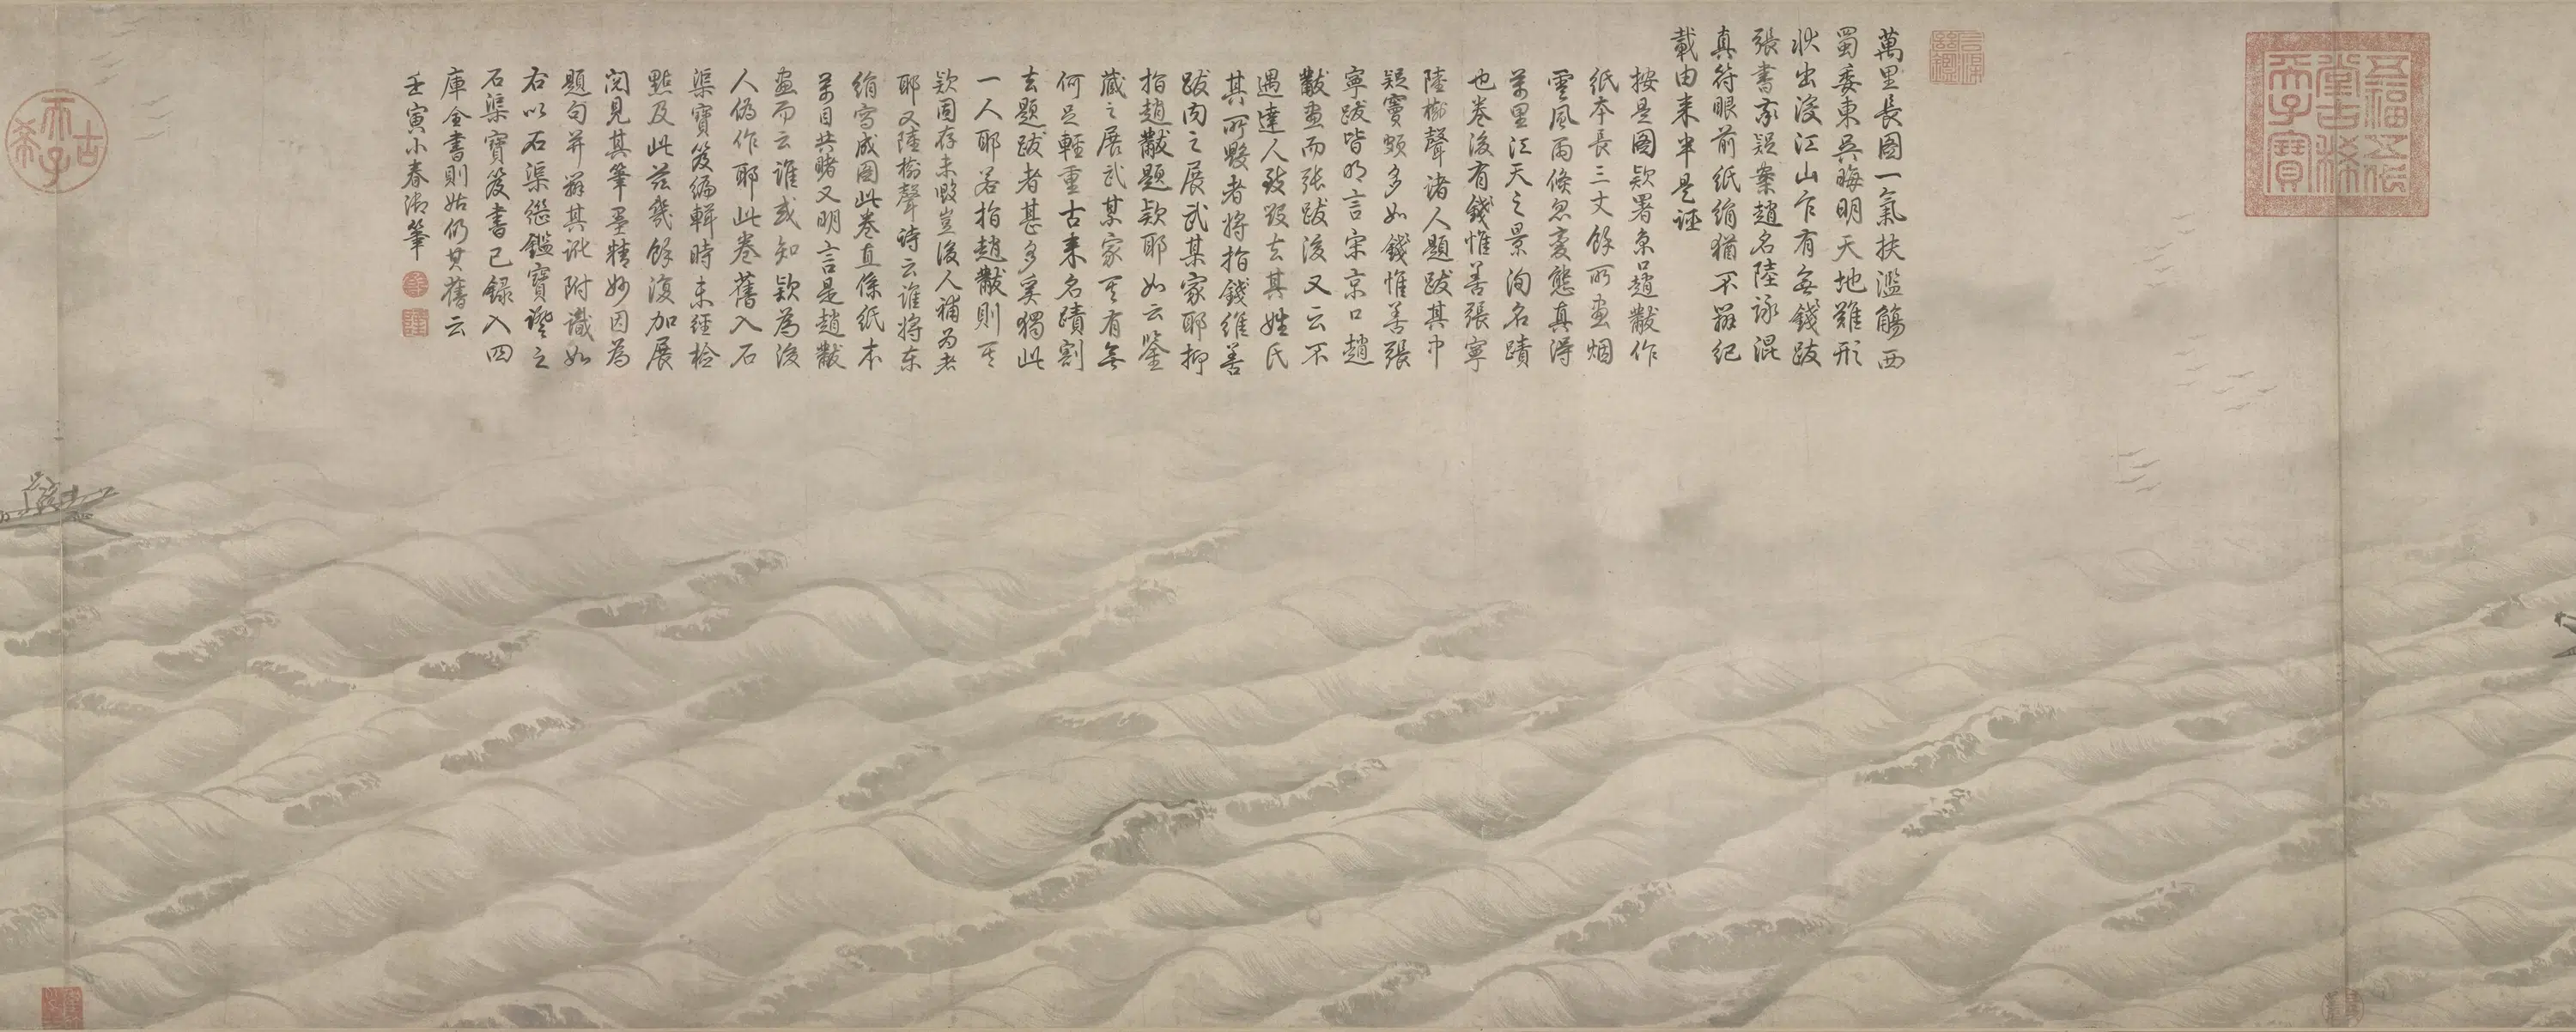 萬里長圖一氣扶濫觴西
蜀委東吳晦明天地難形
狀出沒江山乍有無錢跋
張書亦疑案趙名陸詠混
真符眼前紙絹猶不辨紀
載由來半是誣
按是圖款署京口趙黻作
紙本長三丈餘所畫烟
雲風雨倏忽變態真得
萬里江天之景洵名蹟
也卷後有錢惟善張寧
陸樹聲諸人題跋其中
疑竇頗多如錢惟善張
寧跋皆明言宋京口趙
黻畫而張跋後又云不
遇達人致毀去其姓氏
其所毀者將指錢維善
跋內之展武某家耶抑
指趙黻題款耶如云鑒
藏之展武某家其有無
何足輕重古來名蹟割
去題跋者甚多奚獨此
一人耶若指趙黻則其
款固存未毀豈後人補為者
耶又陸樹聲詩云誰將東
絹寫成圖此卷直係紙本
萬目共睹又明言是趙黻
畫而云誰或知款為後
人偽作耶此卷舊入石
渠寶笈編輯時未經檢
點及此茲幾餘復加展
閱見其筆墨精妙因為
題句并辨其訛附識如
右以石渠繼鑑寶璽之
石渠寶笈書已錄入四
庫全書則姑仍其舊云
壬寅小春御筆
五福五代
堂古稀
天子寶
古稀天子